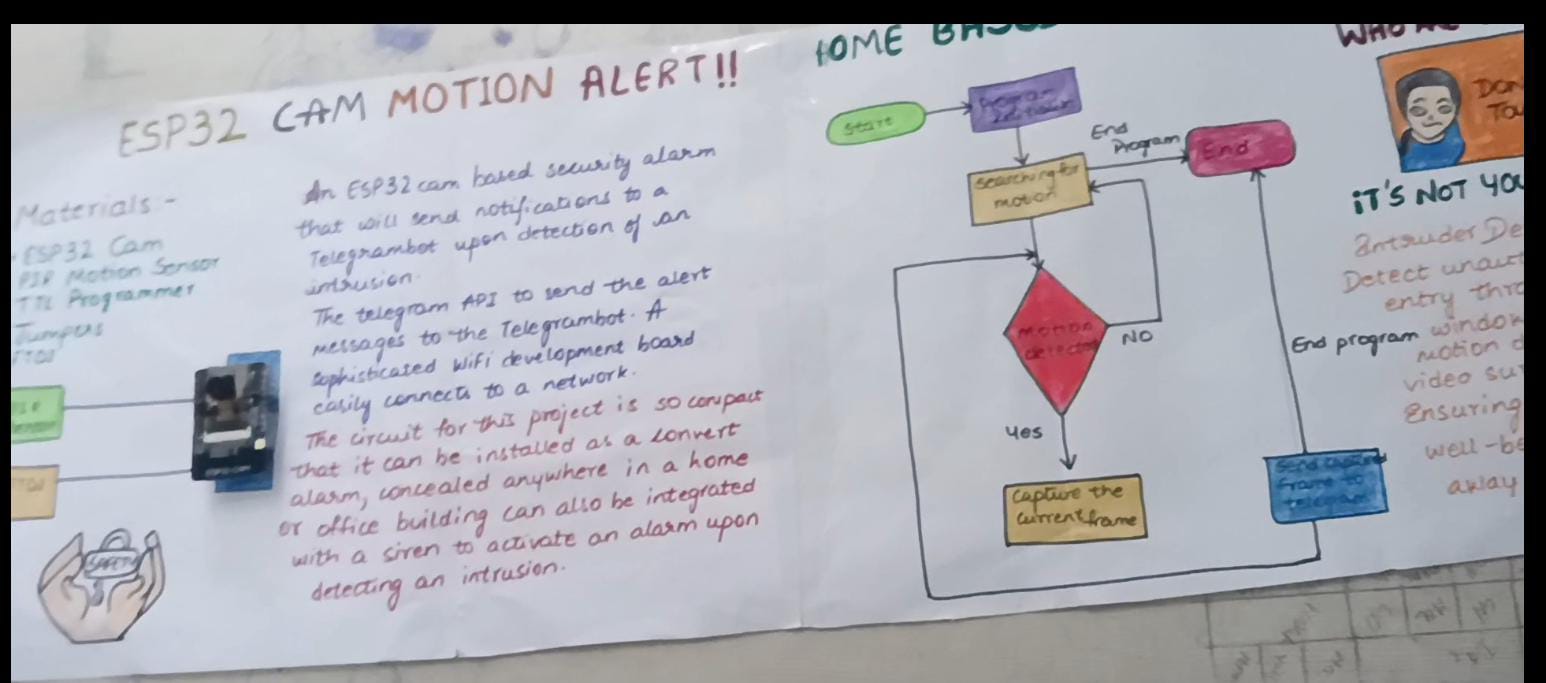 ESP32 CAM MOTION ALERT!!
Materials:-
ESP32 Cam
PIR Motion Sensor
TTL Programmer
Jumpers
An ESP32 cam based security alarm
that will send notifications to a
Telegrambot upon detection of an
intrusion.
The telegram API to send the alert
messages to the Telegrambot. A
sophisticated WiFi development board
easily connects to a network.
The circuit for this project is so compact
that it can be installed as a convert
alarm, concealed anywhere in a home
or office building can also be integrated
with a siren to activate an alarm upon
detecting an intrusion.
SAFETY
HOME
Start
Program
End
Program
End
Searching for
motion
Motion
detected
NO
Yes
Capture the
current frame
End program
Send capture
frame to
telegram
WHO
iT'S NOT YOU
Intruder
Detect
entry
motion
video
Ensuring
away